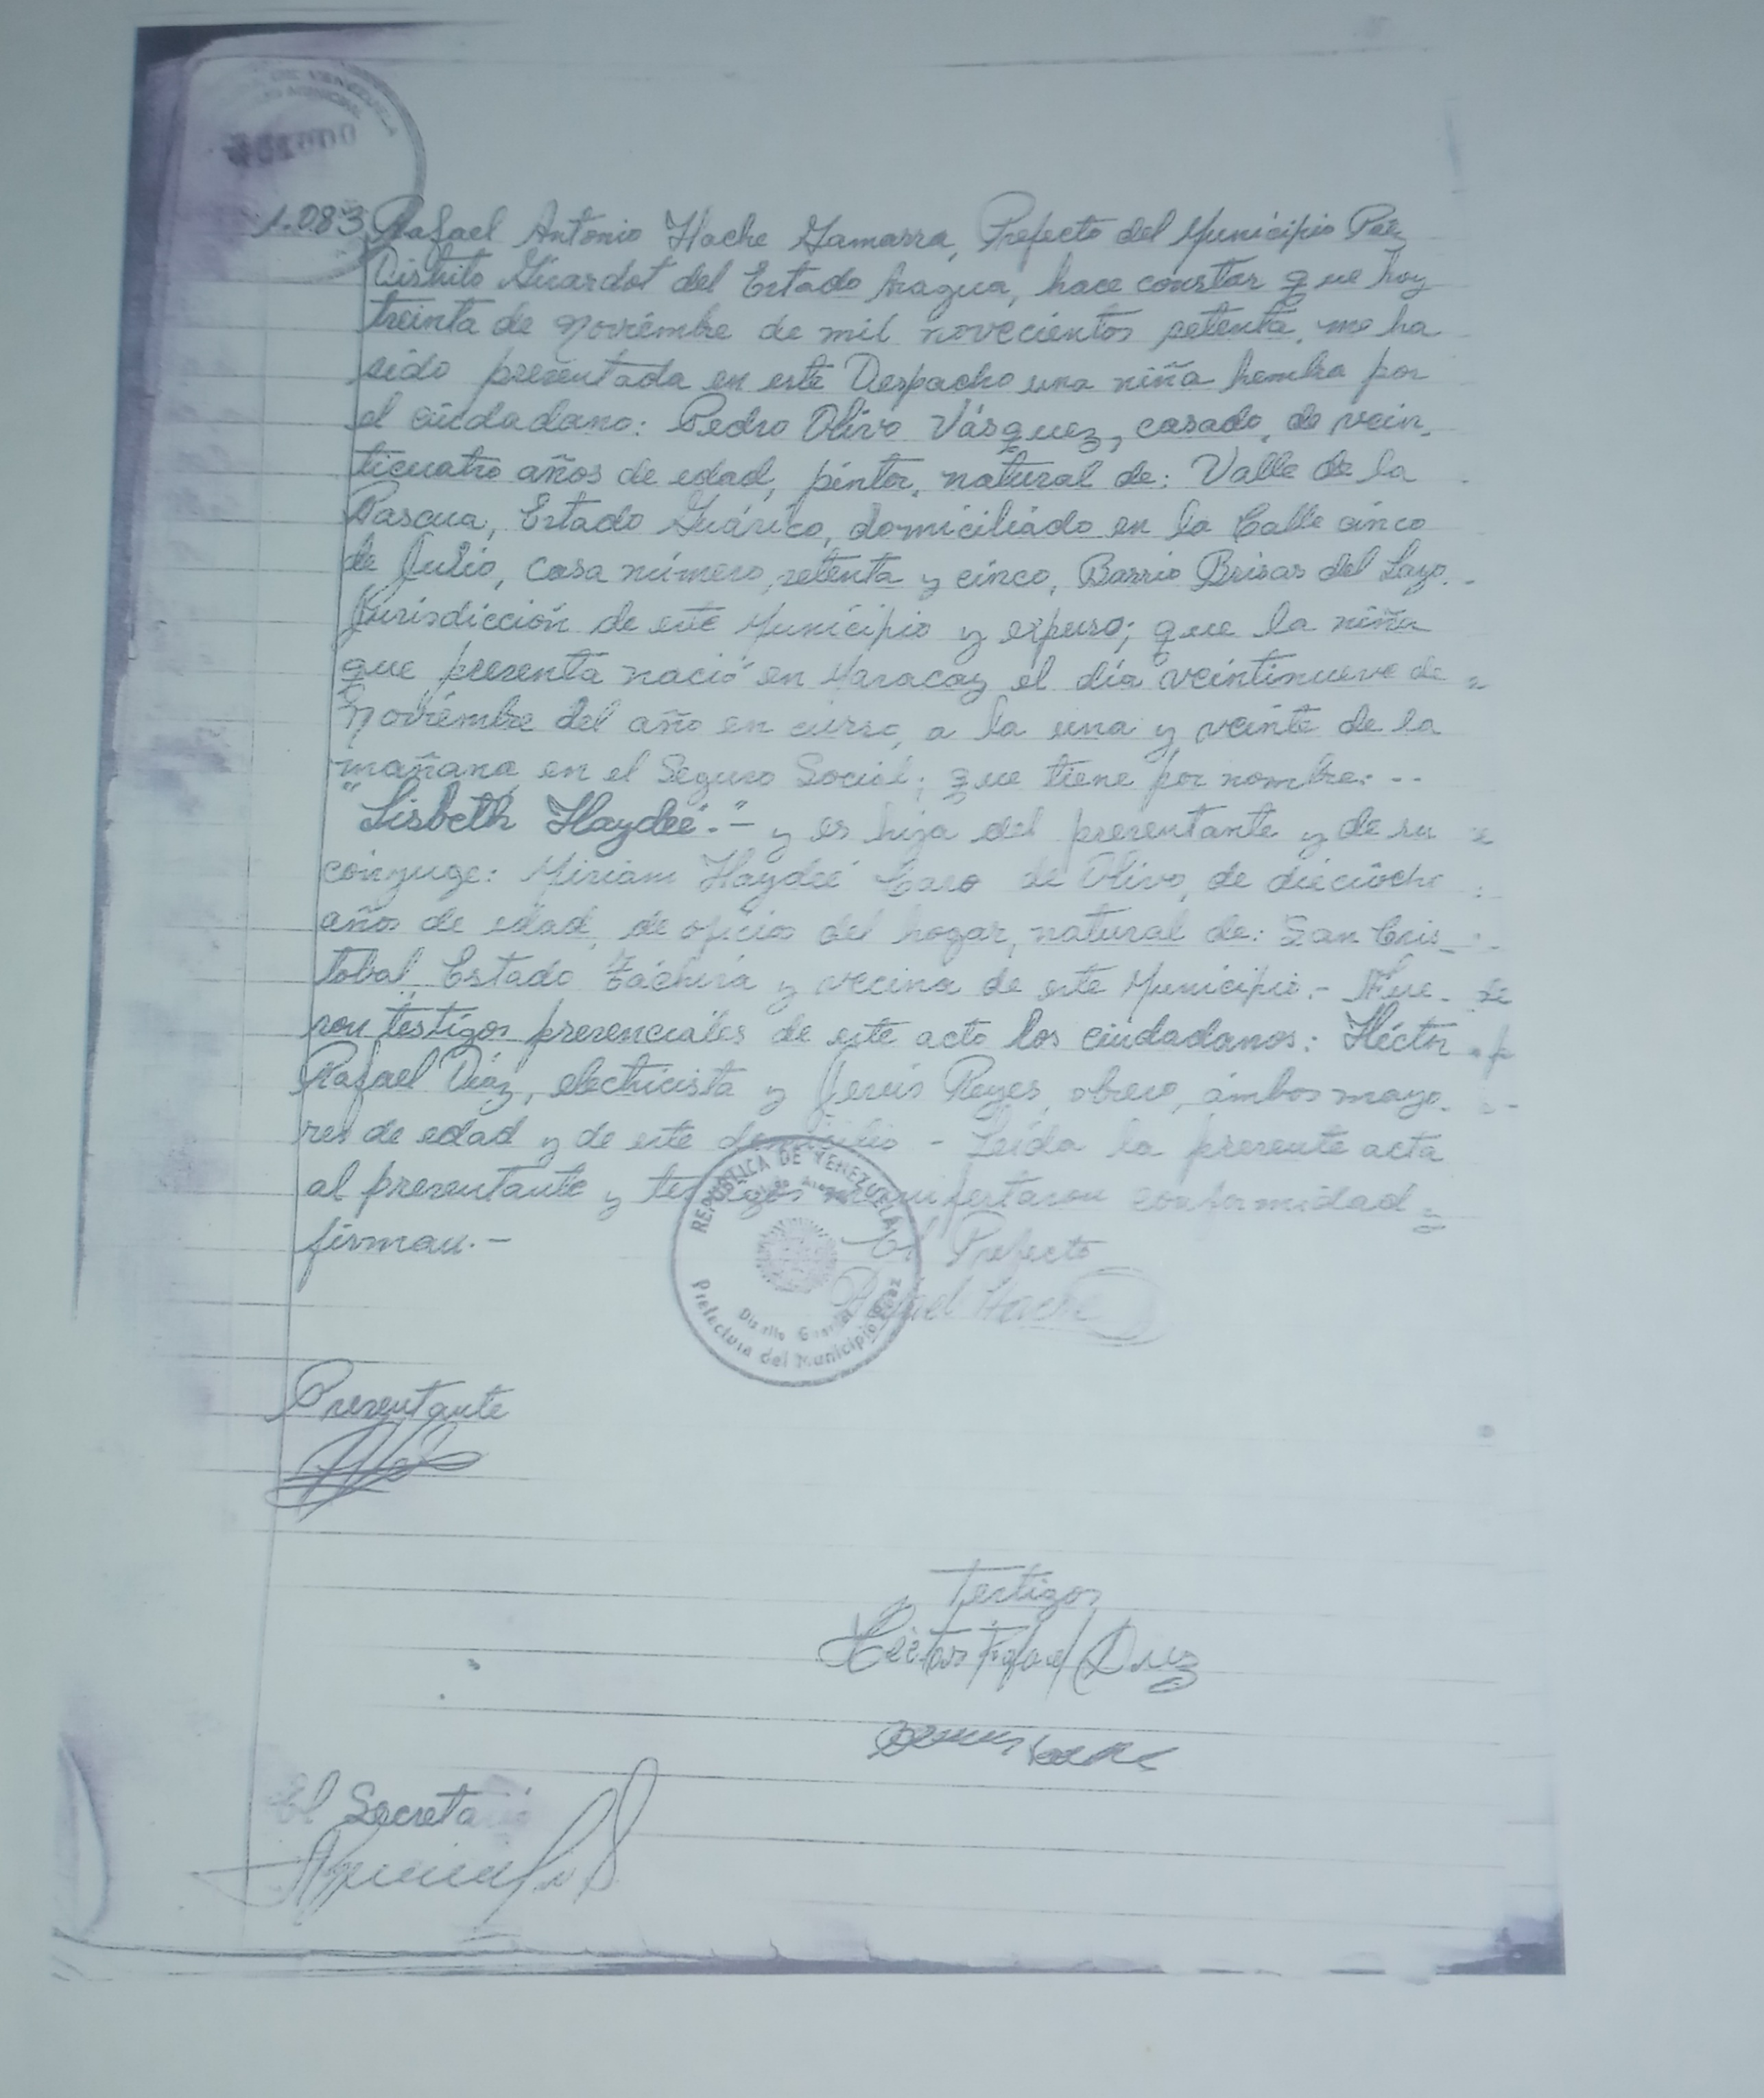 DE VENEZUELA
MUNICIPAL
1.083 Rafael Antonio Hache Gamarra, Prefecto del Municipio Páez
Distrito Girardot del Estado Aragua, hace constar que hoy
treinta de Noviembre de mil novecientos setenta, me ha
sido presentada en este Despacho una niña hembra por
el ciudadano: Pedro Olivo Vásquez, casado, de vein-
ticuatro años de edad, pintor, natural de: Valle de la
Pascua, Estado Guárico, domiciliado en la Calle cinco
de Julio, casa número setenta y cinco, Barrio Brisas del Lago.
Jurisdicción de este Municipio y expuso; que la niña
que presenta nació en Maracay el día veintinueve de
Noviembre del año en curso, a la una y veinte de la
mañana, en el Seguro Social; que tiene por nombre: --
"Lisbeth Haydeé".- y es hija del presentante y de su
cónyuge: Miriam Haydeé Caro de Olivo, de dieciocho
años de edad, de oficios del hogar, natural de: San Cris-
tobal, Estado Táchira y vecina de este Municipio.- Fue-
ron testigos presenciales de este acto los ciudadanos: Héctor
Rafael Díaz, electricista y Jesús Reyes, obrero, ámbos mayo-
res de edad y de este domicilio - Leída la presente acta
al presentante y testigos manifestaron conformidad y
firman.-
El Prefecto
Rafael Hache
REPUBLICA DE VENEZUELA
Estado Aragua
Distrito Girardot
Prefectura del Municipio Páez
Presentante
Testigos
Héctor Rafael Díaz
El Secretario